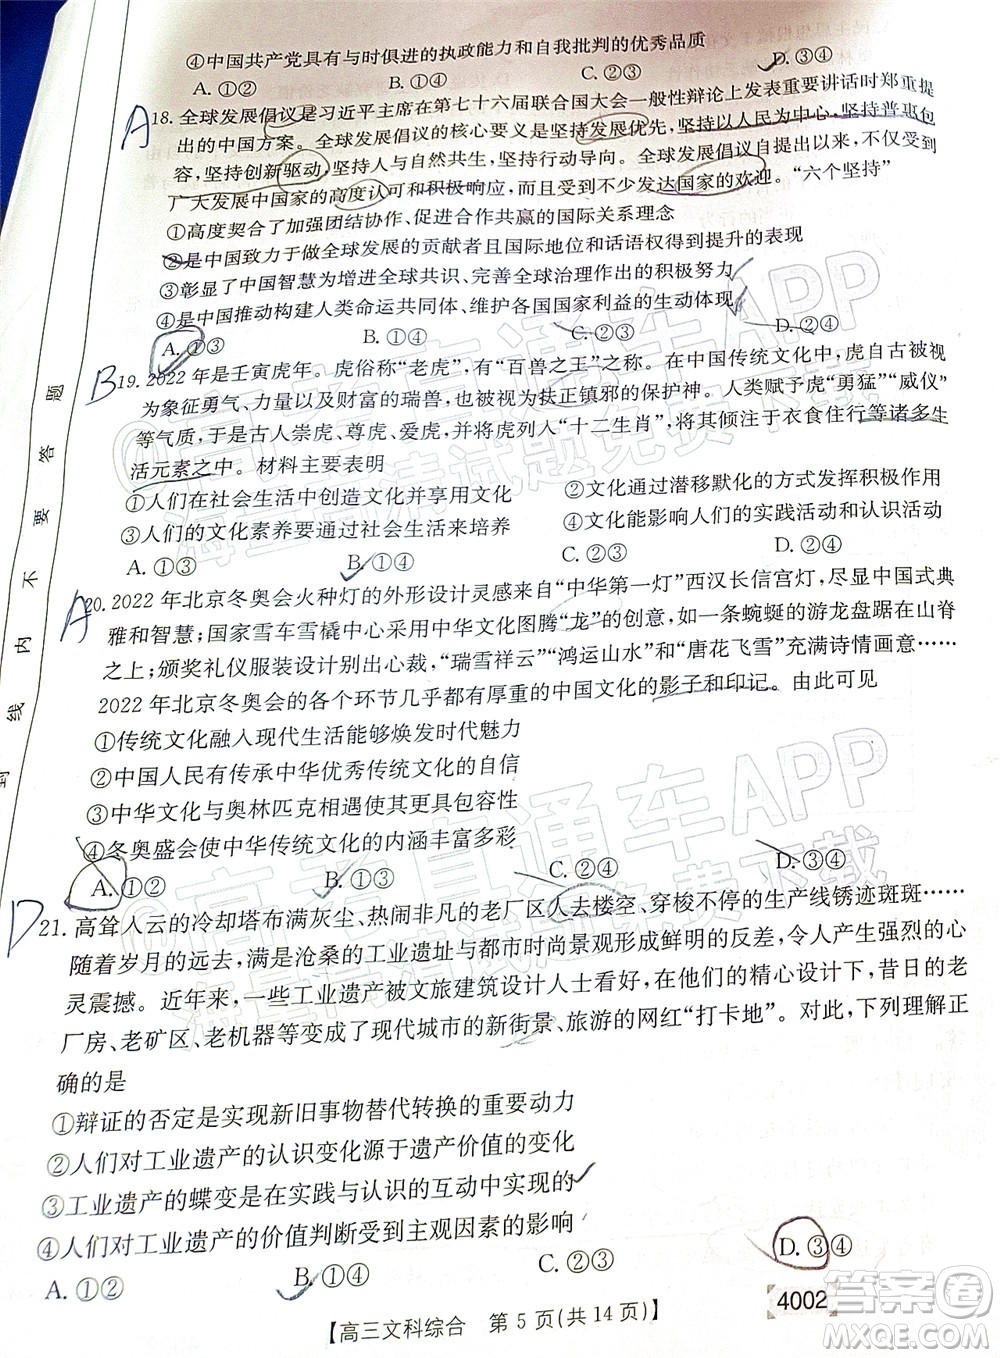 ④中国共产党具有与时俱进的执政能力和自我批判的优秀品质
A. ①② B. ①④ C. ②③ D. ③④
A
18. 全球发展倡议是习近平主席在第七十六届联合国大会一般性辩论上发表重要讲话时郑重提
出的中国方案。全球发展倡议的核心要义是坚持发展优先,坚持以人民为中心,坚持普惠包
容,坚持创新驱动,坚持人与自然共生,坚持行动导向。全球发展倡议自提出以来,一直受到
广大发展中国家的高度认可和积极响应,甚至受到不少发达国家的欢迎。“六个坚持”
①高度契合了加强团结协作、促进合作共赢的国际关系理念
②是中国致力于做全球发展的贡献者且国际地位和话语权得到提升的表现
③彰显了中国智慧为增进全球共识、完善全球治理作出的积极努力
④是中国推动构建人类命运共同体、维护各国国家利益的生动体现
A. ①③ B. ①④ C. ②③ D. ②④
B
19. 2022年是壬寅虎年。虎俗称“老虎”,有“百兽之王”之称。在中国传统文化中,虎自古被视
为象征勇气、力量以及财富的瑞兽,也被视为扶正镇邪的保护神。人类赋予虎“勇猛”“威仪”
等气质,于是古人崇虎、尊虎、爱虎,并将虎列入“十二生肖”,将其加注于衣食住行等诸多生
活元素之中。材料主要表明
①人们在社会生活中创造文化并享用文化 ②文化通过潜移默化的方式发挥积极作用
③人们的文化素养要通过社会生活来培养 ④文化能影响人们的实践活动和认识活动
A. ①③ B. ①④ C. ②③ D. ②④
A
20. 2022年北京冬奥会火种灯的外形设计灵感来自“中华第一灯”西汉长信宫灯,尽显中国式典
雅和智慧;国家雪车雪橇中心采用中华文化图腾“龙”的创意,如一条蜿蜒的游龙盘踞在山脊
之上;颁奖礼仪服装设计别出心裁,“瑞雪祥云”“鸿运山水”和“唐花飞雪”充满诗情画意……
2022年北京冬奥会的各个环节几乎都有厚重的中国文化的影子和印记。由此可见
①传统文化融入现代生活能够焕发时代魅力
②中国人民有传承中华优秀传统文化的自信
③中华文化与奥林匹克相遇相融
④冬奥盛会使中华传统文化的内涵丰富多彩
A. ①② B. ①④ C. ②③ D. ③④
D
21. 高耸入云的冷却塔布满灰尘、热闹非凡的老厂区人去楼空、穿梭不停的生产线锈迹斑斑……
随着岁月的远去,满是沧桑的工业遗址与都市时尚景观形成鲜明的对比,令人产生强烈的心
灵震撼。近年来,一些工业遗产被文旅建筑设计人士看好,在他们的精心设计下,昔日的老
厂房、老矿区、老机器等变成了现代城市的新街景、旅游的网红“打卡地”。对此,下列理解正
确的是
①辩证的否定是实现新旧事物替代转换的重要动力
②人们对工业遗产的认识变化源于遗产价值的变化
③工业遗产的蝶变是在实践与认识的互动中实现的
④人们对工业遗产的价值判断受到主观因素的影响
A. ①② B. ①④ C. ②③ D. ③④
【高三文科综合 第 5 页(共 14 页)】
4002
答案圈
MXQE.COM
题
答
要
不
内
线
封
@高考直通车APP
@高考直通车APP